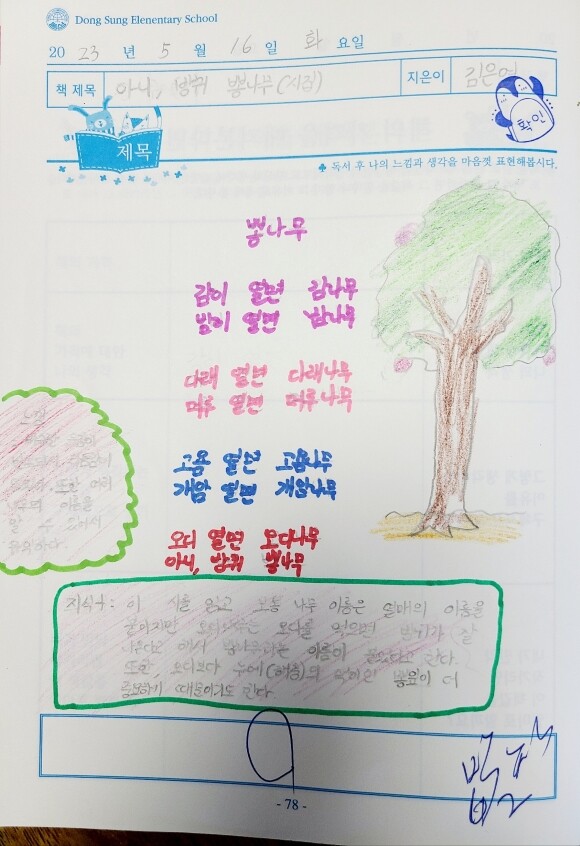 Dong Sung Elenentary School
20 23 년 5 월 16 일 화 요일
책 제목 아니, 방귀 뽕나무(시집) 지은이 김은영
확인
제목
♣ 독서 후 나의 느낌과 생각을 마음껏 표현해봅시다.
뽕나무
감이 열면 감나무
밤이 열면 밤나무
다래 열면 다래나무
머루 열면 머루나무
고욤 열면 고욤나무
개암 열면 개암나무
오디 열면 오디나무
아니, 방귀 뽕나무
느낌
또한 여러
나무의 이름을
알 수 있어서
유익하다.
지식+: 이 시를 읽고 보통 나무 이름은 열매의 이름을
붙이지만 오디나무는 오디를 먹으면 방귀가 잘
나온다고 해서 뽕나무라는 이름이 붙었다고 한다.
또한, 오디보다 누에(애벌)의 먹이인 뽕잎이 더
중요하기 때문이기도 한다.
- 78 -